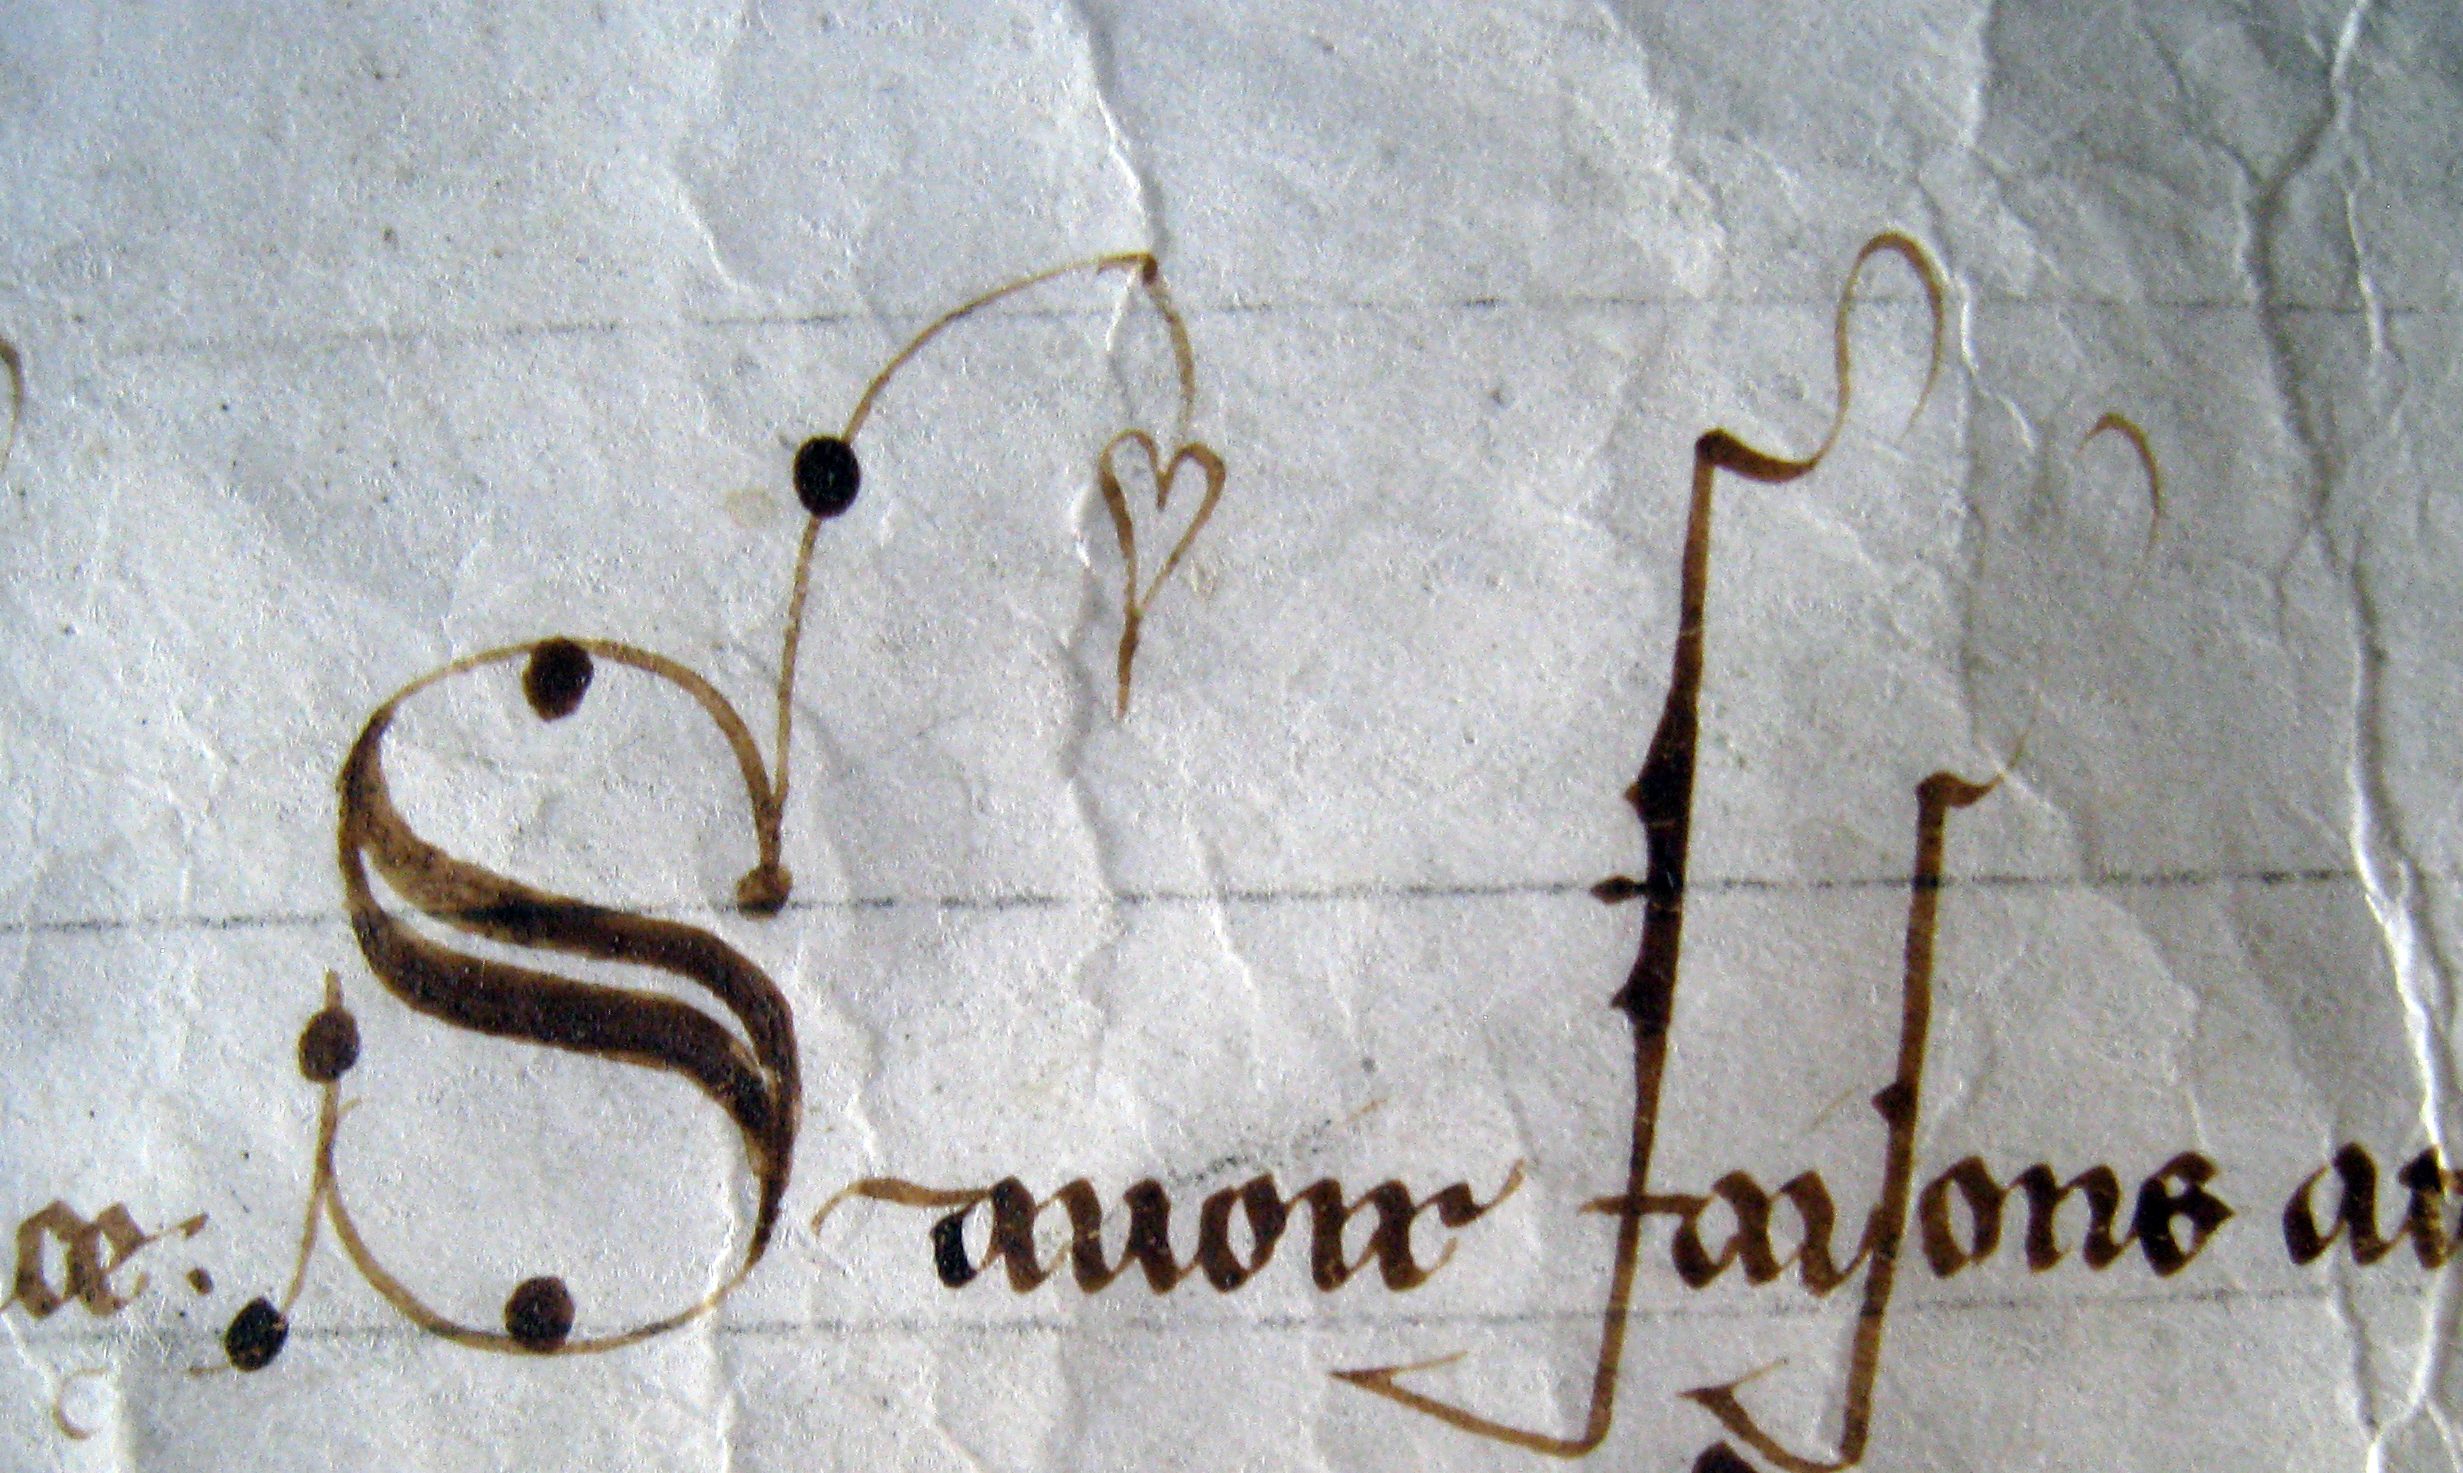 ce. Sauoir faisons au